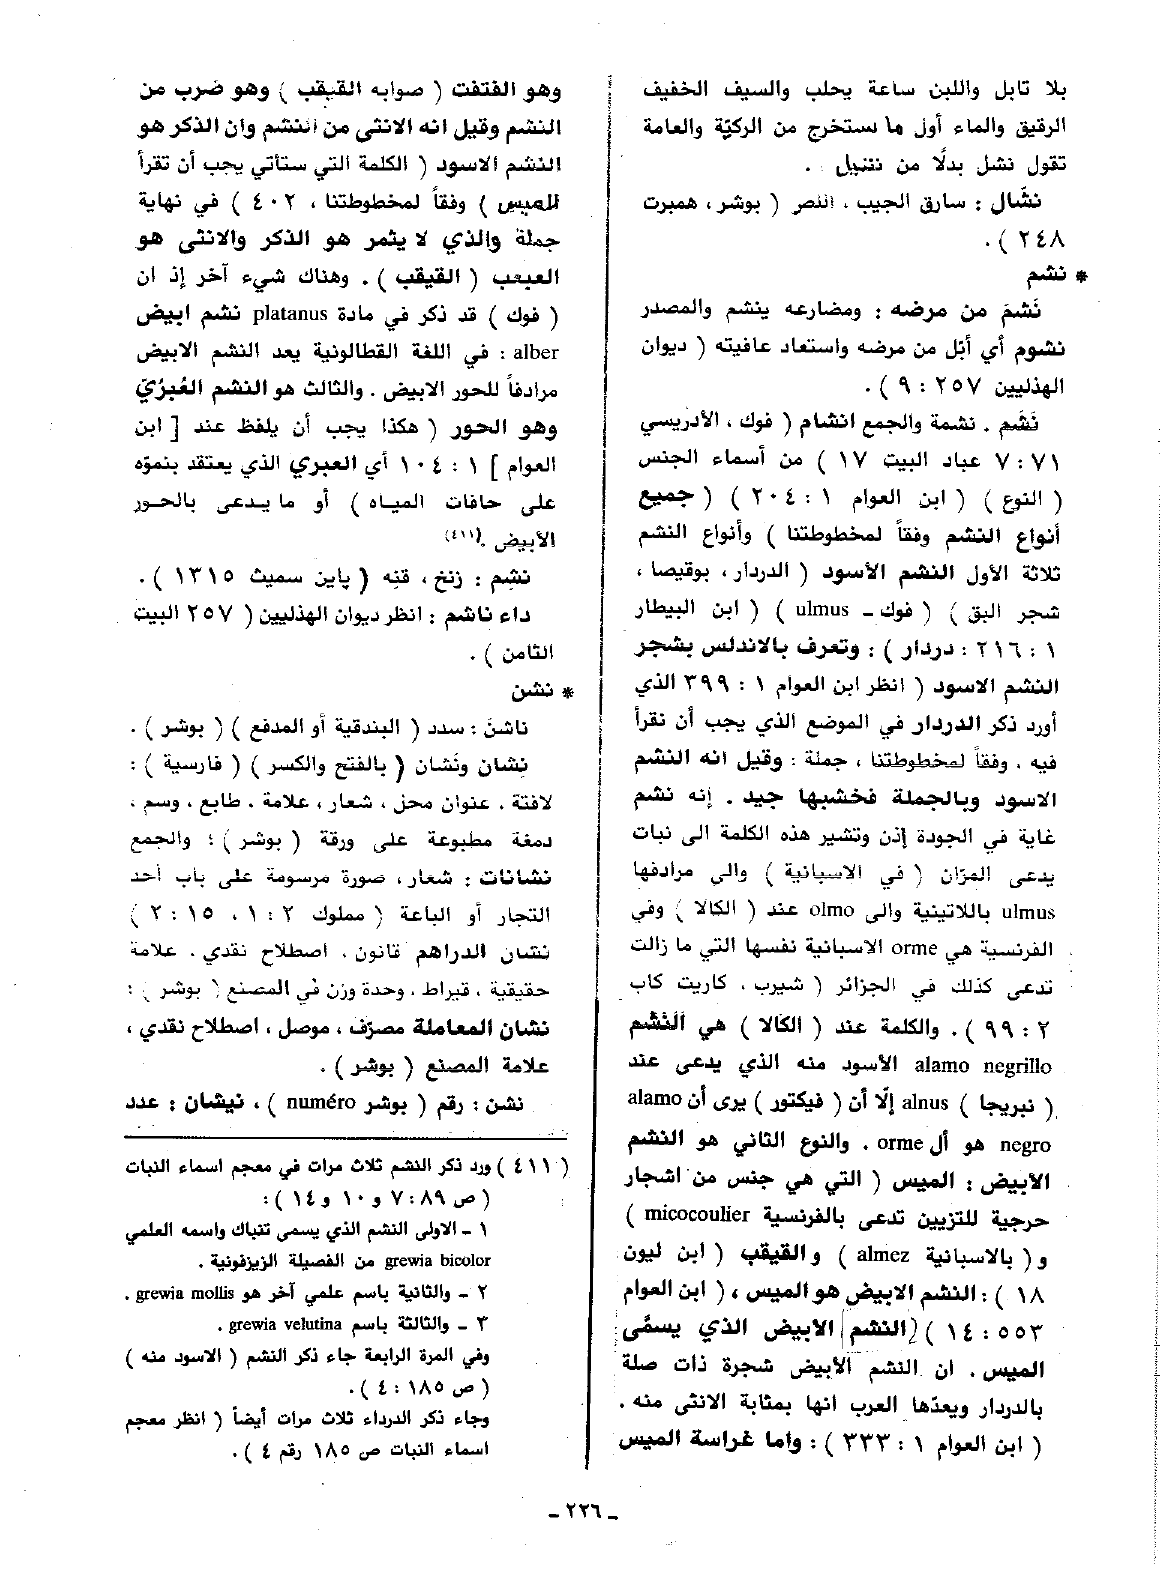 بلا تابل واللبن ساعة يحلب والسيف الخفيف
الرقيق والماء أول ما يستخرج من الركيّة والعامة
تقول نشل بدلًا من نتنيل .
نشّال : سارق الجيب ، اللص ( بوشر ، همبرت
٢٤٨ ) .
* نشم
نَشَمَ من مرضه : ومضارعه ينشم والمصدر
نشوم أي أبَل من مرضه واستعاد عافيته ( ديوان
الهذليين ٢٥٧ : ٩ ) .
نَشَم . نشمة والجمع انشام ( فوك ، الأدريسي
٧١ : ٧ عباد البيت ١٧ ) من أسماء الجنس
( النوع ) ( ابن العوام ١ : ٢٠٤ ) ( جميع
أنواع النشم وفقاً لمخطوطتنا ) وأنواع النشم
ثلاثة الأول النشم الأسود ( الدردار ، بوقيصا ،
شجر البق ) ( فوك - ulmus ) ( ابن البيطار
١ : ٢١٦ : دردار ) : وتعرف بالاندلس بشجر
النشم الاسود ( انظر ابن العوام ١ : ٣٩٩ الذي
أورد ذكر الدردار في الموضع الذي يجب أن نقرأ
فيه ، وفقاً لمخطوطتنا ، جملة : وقيل انه النشم
الاسود وبالجملة فخشبها جيد . إنه نشم
غاية في الجودة إذن وتشير هذه الكلمة الى نبات
يدعى المرّان ( في الاسبانية ) والى مرادفها
ulmus باللاتينية والى olmo عند ( الكالا ) وفي
الفرنسية هي orme الاسبانية نفسها التي ما زالت
تدعى كذلك في الجزائر ( شيرب ، كاريت كاب
٢ : ٩٩ ) . والكلمة عند ( الكالا ) هي النَشَم
alamo negrillo الأسود منه الذي يدعى عند
( نبريجا ) alnus إلّا أن ( فيكتور ) يرى أن alamo
negro هو أل orme . والنوع الثاني هو النشم
الأبيض : الميس ( التي هي جنس من اشجار
حرجية للتزيين تدعى بالفرنسية micocoulier )
و ( بالاسبانية almez ) والقيقب ( ابن ليون
١٨ ) : النشم الابيض هو الميس ، ( ابن العوام
٥٥٣ : ١٤ ) ( النشم الابيض الذي يسمّى
الميس . ان النشم الأبيض شجرة ذات صلة
بالدردار ويعدّها العرب انها بمثابة الانثى منه .
( ابن العوام ١ : ٣٣٣ ) : واما غراسة الميس
وهو الفتفت ( صوابه القيقب ) وهو ضرب من
النشم وقيل انه الانثى من النشم وان الذكر هو
النشم الاسود ( الكلمة التي ستأتي يجب أن تقرأ
للميس ) وفقاً لمخطوطتنا ، ٤٠٢ ) في نهاية
جملة والذي لا يثمر هو الذكر والانثى هو
العيعب ( القيقب ) . وهناك شيء آخر إذ ان
( فوك ) قد ذكر في مادة platanus نشم ابيض
alber : في اللغة القطالونية يعد النشم الابيض
مرادفاً للحور الابيض . والثالث هو النشم العُبرْيّ
وهو الحور ( هكذا يجب أن يلفظ عند [ ابن
العوام ] ١ : ١٠٤ أي العبري الذي يعتقد بنموّه
على حافات المياه ) أو ما يدعى بالحور
الأبيض .(٤١١)
نشِم : زنخ ، قنِه ( پاين سميث ١٣١٥ ) .
داء ناشم : انظر ديوان الهذليين ( ٢٥٧ البيت
الثامن ) .
* نشن
ناشنَ : سدد ( البندقية أو المدفع ) ( بوشر ) .
نِشان ونَشان ( بالفتح والكسر ) ( فارسية ) :
لافتة ، عنوان محل ، شعار ، علامة ، طابع ، وسم ،
دمغة مطبوعة على ورقة ( بوشر ) ؛ والجمع
نشانات : شعار ، صورة مرسومة على باب أحد
التجار أو الباعة ( مملوك ٢ : ١ ، ١٥ : ٢ )
نشان الدراهم قانون ، اصطلاح نقدي . علامة
حقيقية ، قيراط ، وحدة وزن في المصنع ( بوشر ) :
نشان المعاملة مصرّف ، موصل ، اصطلاح نقدي ،
علامة المصنع ( بوشر ) .
نشن : رقم ( بوشر numéro ) ، نيشان : عدد
( ٤١١ ) ورد ذكر النشم ثلاث مرات في معجم اسماء النبات
( ص ٨٩ : ٧ و ١٠ و ١٤ ) :
١ - الاولى النشم الذي يسمى تنباك واسمه العلمي
grewia bicolor من الفصيلة الزيزفونية .
٢ - والثانية باسم علمي آخر هو grewia mollis .
٣ - والثالثة باسم grewia velutina .
وفي المرة الرابعة جاء ذكر النشم ( الاسود منه )
( ص ١٨٥ : ٤ ) .
وجاء ذكر الدرداء ثلاث مرات أيضاً ( انظر معجم
اسماء النبات ص ١٨٥ رقم ٤ ) .
- ٢٢٦ -